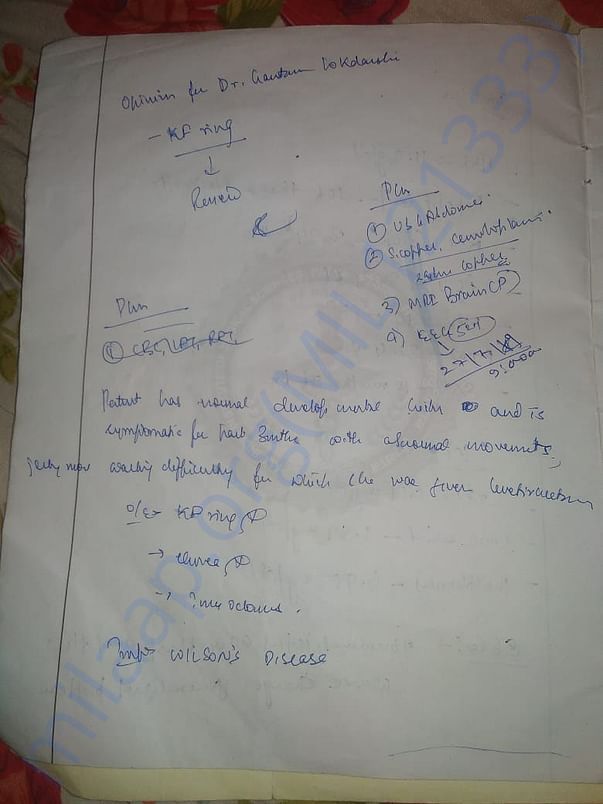 Opinion for Dr. Gautam Lokdarshi
- KF ring
↓
Review
Plan
① USG Abdomen.
② S. copper, ceruloplasmin.
24 hr urine copper
3) MRI Brain CP
4) EEG
27/7/
9:00
Plan
① CBC, LFT, RFT,
Patient has normal developmental and is
symptomatic for last 3mths with abnormal movements,
jerky mov walking difficulty for which she was given levetiracetam
O/E → KF ring
→ chorea
→ ? myoclonus.
Imp- WILSON'S DISEASE
milaap.org